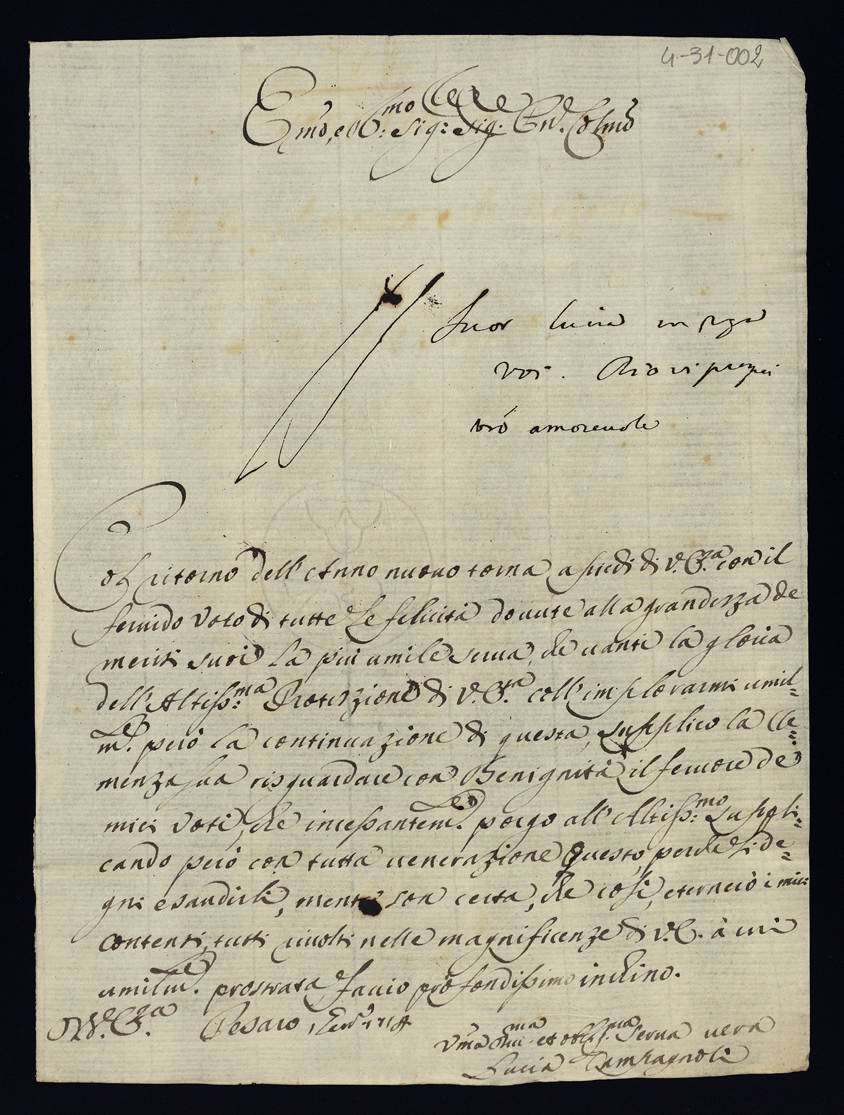 4-31-002
Em̃o, e R:mo Sig: Sig: Pn̄e Colmo
Suor Lucia
voi. Dio vi prosperi
amorevole
Col ritorno dell'Anno nuovo torna a piedi di V. Em.za con il
fervido voto di tutte le felicità dovute alla grandezza de
meriti suoi la più umile serva, che vanti la gloria
dell'Altiss:ma Protezzione di V. Em.za coll'implorarmi umil=
m.te però la continuazione di questa, supplico la Cle=
menza sua risguardare con Benignità il fervore de
miei voti, che incessantem.te porgo all'Altiss:mo supli=
cando però con tutta venerazione Questo perche si de=
gni esaudirli, mentre son certa, che così eternerò i miei
contenti, tutti rivolti nelle magnificenze di V. E. à cui
umilm.te prostrata faccio profondissimo inchino.
Di V. Em.za Pesaro, 1714
Um̃a Div:ma et obl:ma Serva vera
Lucia Campagnoli